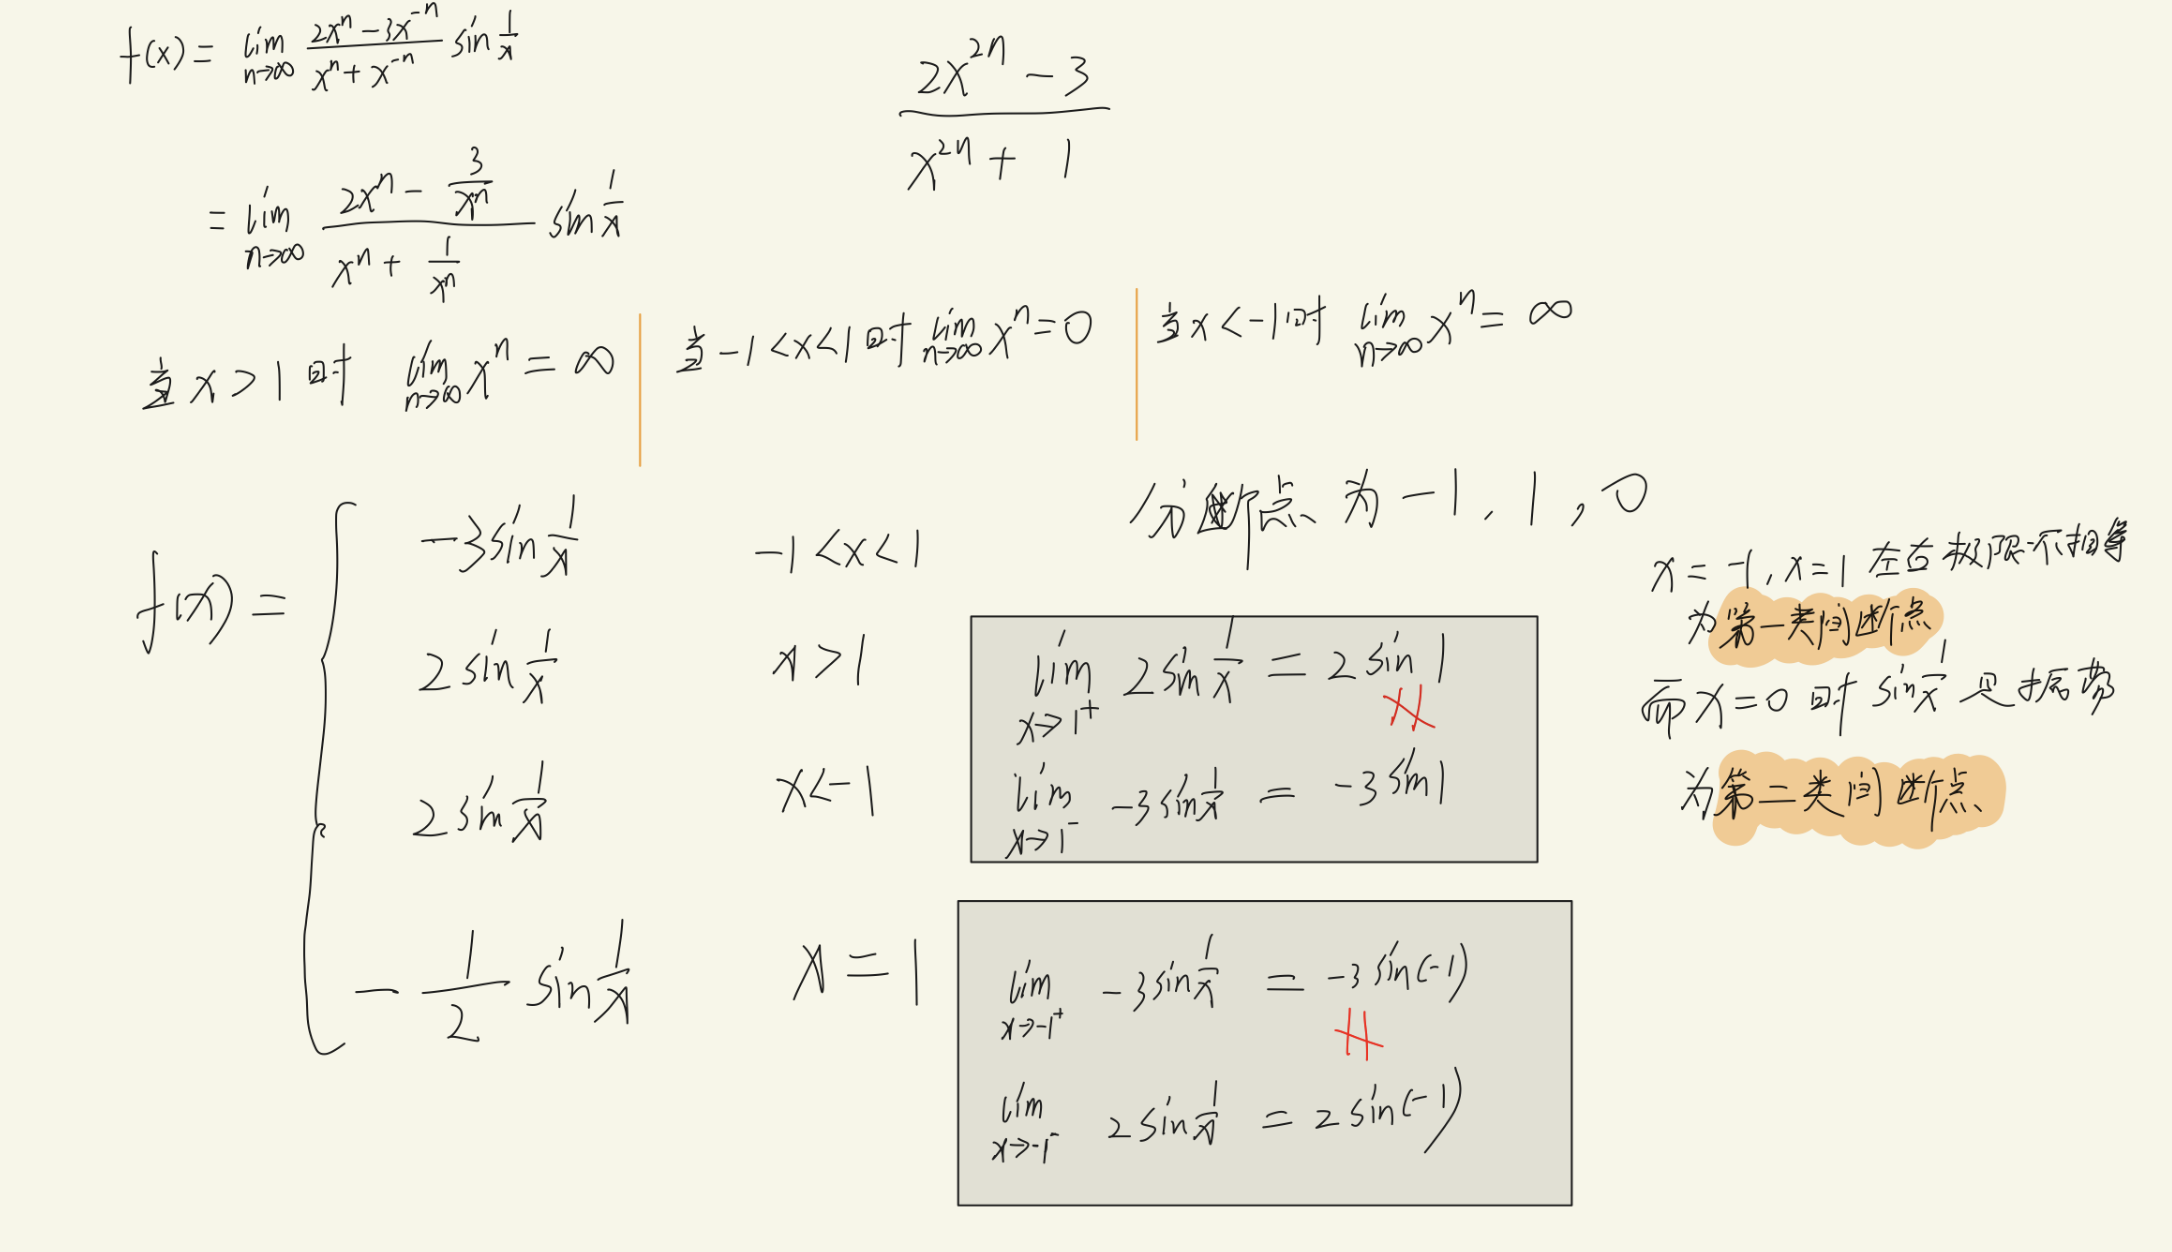 f(x) = lim n→∞ (2xⁿ − 3x⁻ⁿ)/(xⁿ + x⁻ⁿ) sin 1/x
(2x²ⁿ − 3)/(x²ⁿ + 1)
= lim n→∞ (2xⁿ − 3/xⁿ)/(xⁿ + 1/xⁿ) sin 1/x
当 x > 1 时 lim n→∞ xⁿ = ∞
当 −1 < x < 1 时 lim n→∞ xⁿ = 0
当 x < −1 时 lim n→∞ xⁿ = ∞
f(x) = {
−3 sin 1/x −1 < x < 1
2 sin 1/x x > 1
2 sin 1/x x < −1
−1/2 sin 1/x x = 1
分断点 为 −1, 1, 0
lim x→1⁺ 2 sin 1/x = 2 sin 1
≠
lim x→1⁻ −3 sin 1/x = −3 sin 1
lim x→−1⁺ −3 sin 1/x = −3 sin(−1)
≠
lim x→−1⁻ 2 sin 1/x = 2 sin(−1)
x = −1, x = 1 左右极限不相等
为第一类间断点
而 x = 0 时 sin 1/x 是振荡
为第二类间断点